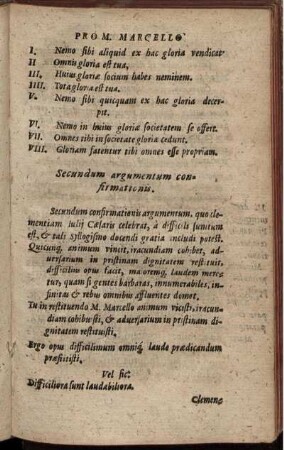 PRO M. MARCELLO
I. Nemo sibi aliquid ex hac gloria vendicat.
II Omnis gloria est tua.
III. Huius gloriæ socium habes neminem.
IIII. Tota gloria est tua.
V. Nemo sibi quicquam ex hac gloria decer-
pit.
VI. Nemo in huius gloriæ societatem se offert.
VII. Omnes tibi in societate gloriæ cedunt.
VIII. Gloriam fatentur tibi omnes esse propriam.
Secundum argumentum con-
firmationis.
Secundum confirmationis argumentum, quo cle-
mentiam Iulij Cæsaris celebrat, à difficili sumtum
est, & tali syllogismo docendi gratia includi potest.
Quicunq, animum vincit, iracundiam cohibet, ad-
versarium in pristinam dignitatem restituit,
difficilius opus facit, maioremq, laudem mere-
tur, quam si gentes barbaras, innumerabiles, in-
finitas & rebus omnibus affluentes domet.
Tu in restituendo M. Marcello animum vicisti, iracun-
diam cohibuisti, & adversarium in pristinam di-
gnitatem restituisti.
Ergo opus difficilimum omniq, laude prædicandum
præstitisti.
Vel sic:
Difficiliora sunt laudabiliora.
Clemen-